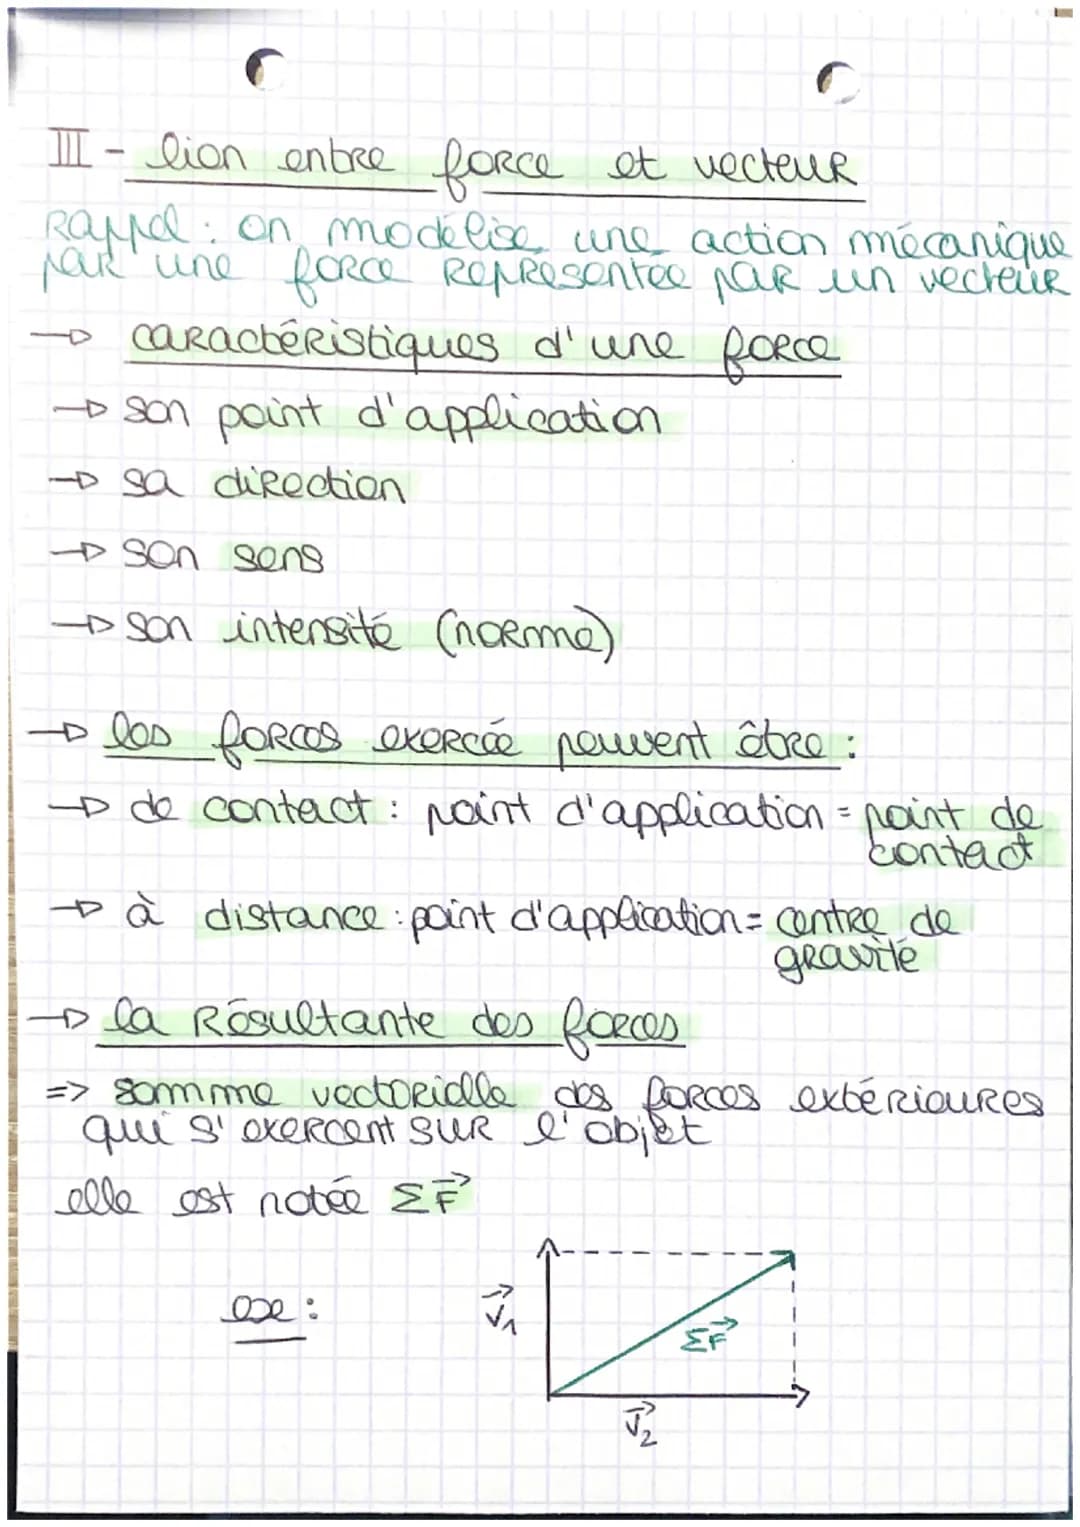 III - lien entre force et vecteur
Rappel : on modélise une action mécanique
par une force représentée par un vecteur
→ caractéristiques d'une force
→ son point d'application
→ sa direction
→ son sens
→ son intensité (norme)
→ les forces exercée peuvent être :
→ de contact : point d'application = point de
contact
→ à distance : point d'application = centre de
gravité
→ la Résultante des forces
=> somme vectorielle des forces extérieures
qui s'exercent sur l'objet
elle est notée ΣF⃗
exe :
V⃗₁
ΣF⃗
V⃗₂